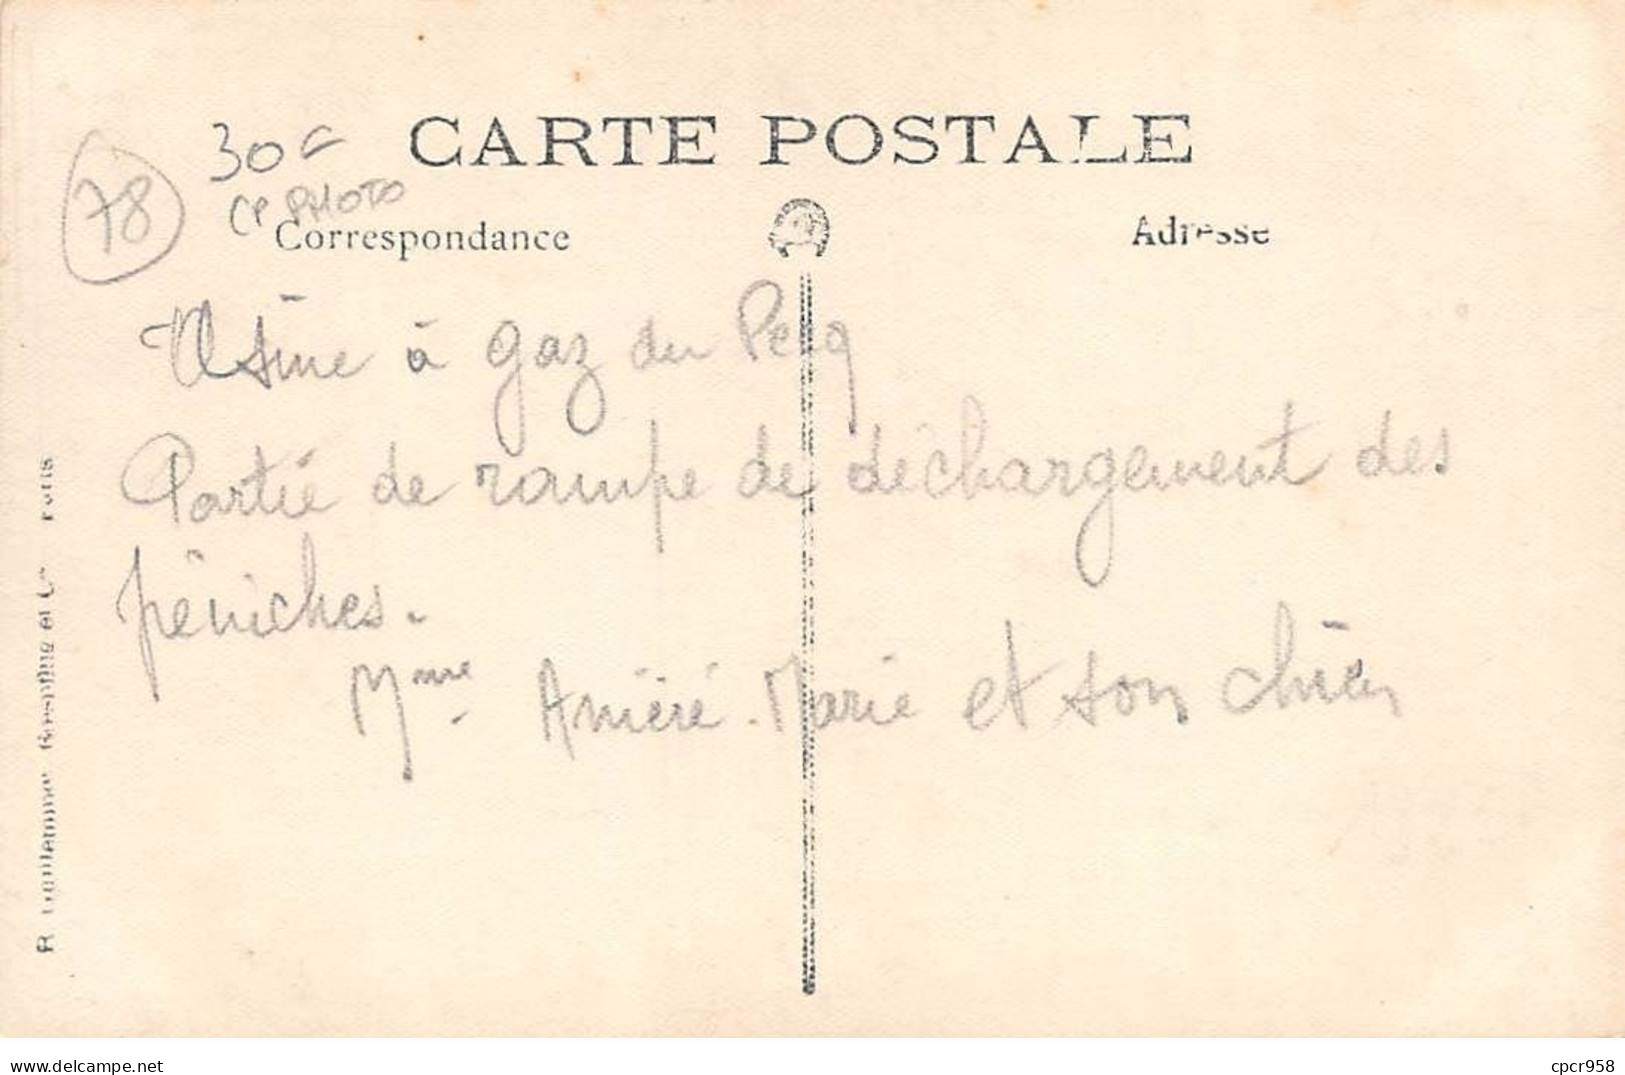 CARTE POSTALE
78
30€
CP PHOTO
Correspondance
Adresse
Usine à gaz du Pecq
Partie de rampe de déchargement des
péniches.
Mme Marie et son chien
R. Guilleminot et Cie Paris
delcampe.net
cpcr958